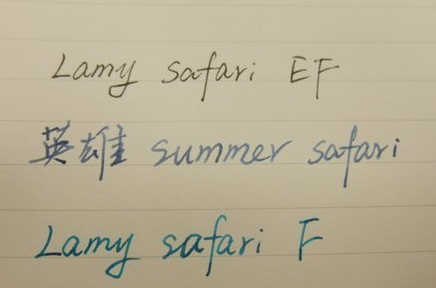 Lamy safari EF
英雄 summer safari
Lamy safari F